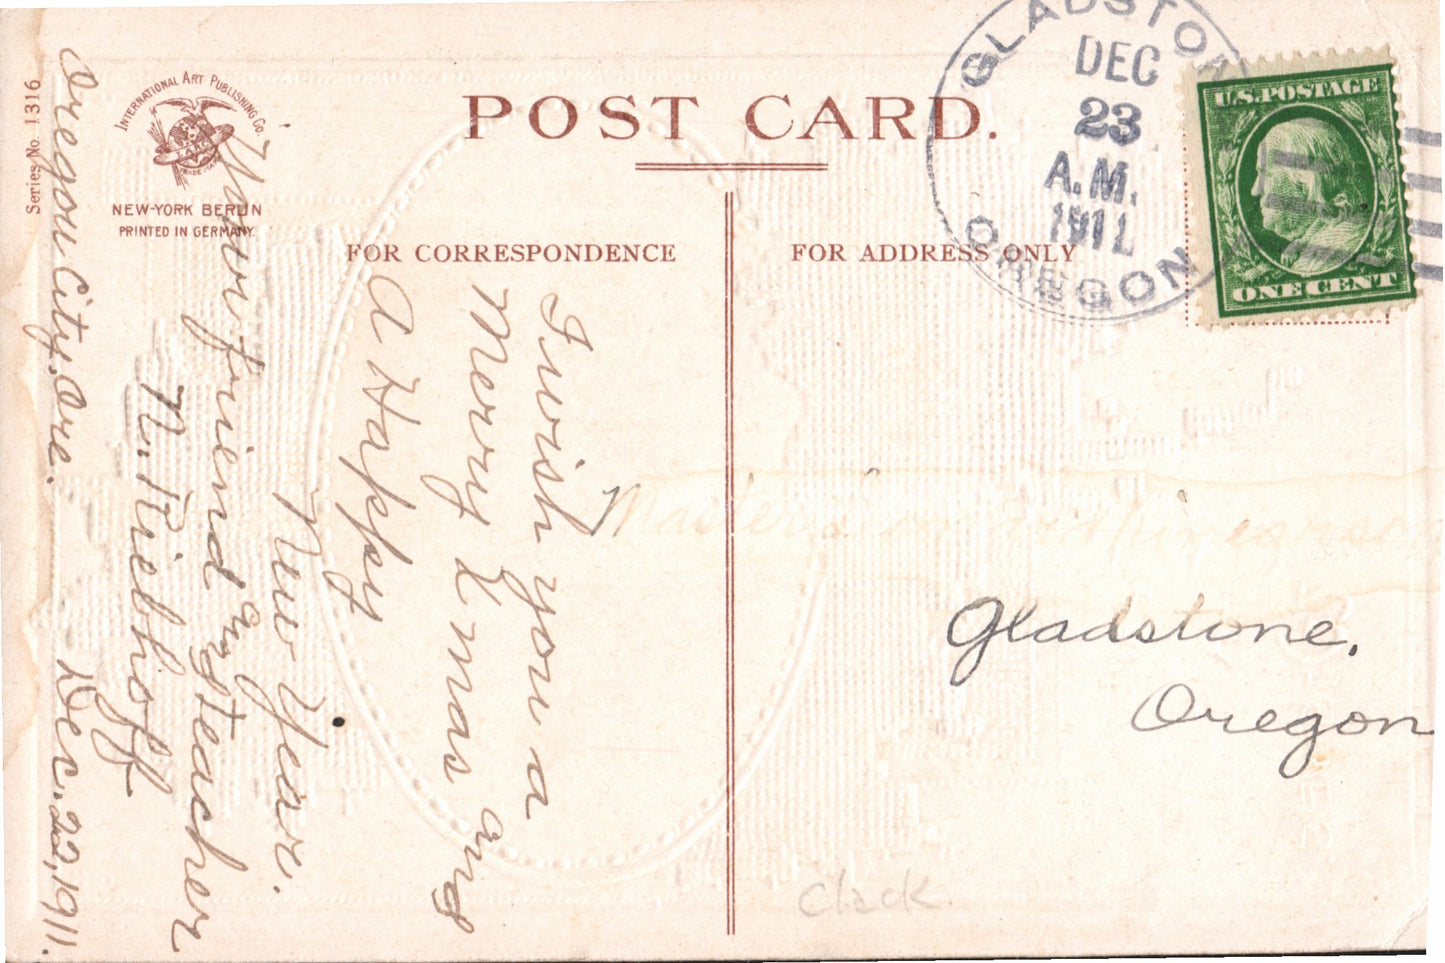 Series No. 1316
INTERNATIONAL ART PUBLISHING CO.
TRADE MARK
NEW-YORK BERLIN
PRINTED IN GERMANY.
POST CARD.
FOR CORRESPONDENCE
FOR ADDRESS ONLY
GLADSTONE
DEC
23
A.M.
1911
OREGON
U.S. POSTAGE
ONE CENT
Oregon City, Ore. Dec. 22, 1911.
I wish you a
Merry Xmas and
A Happy
New Year.
Your friend and teacher
N. Riebhoff
Master
Gladstone,
Oregon
Clack